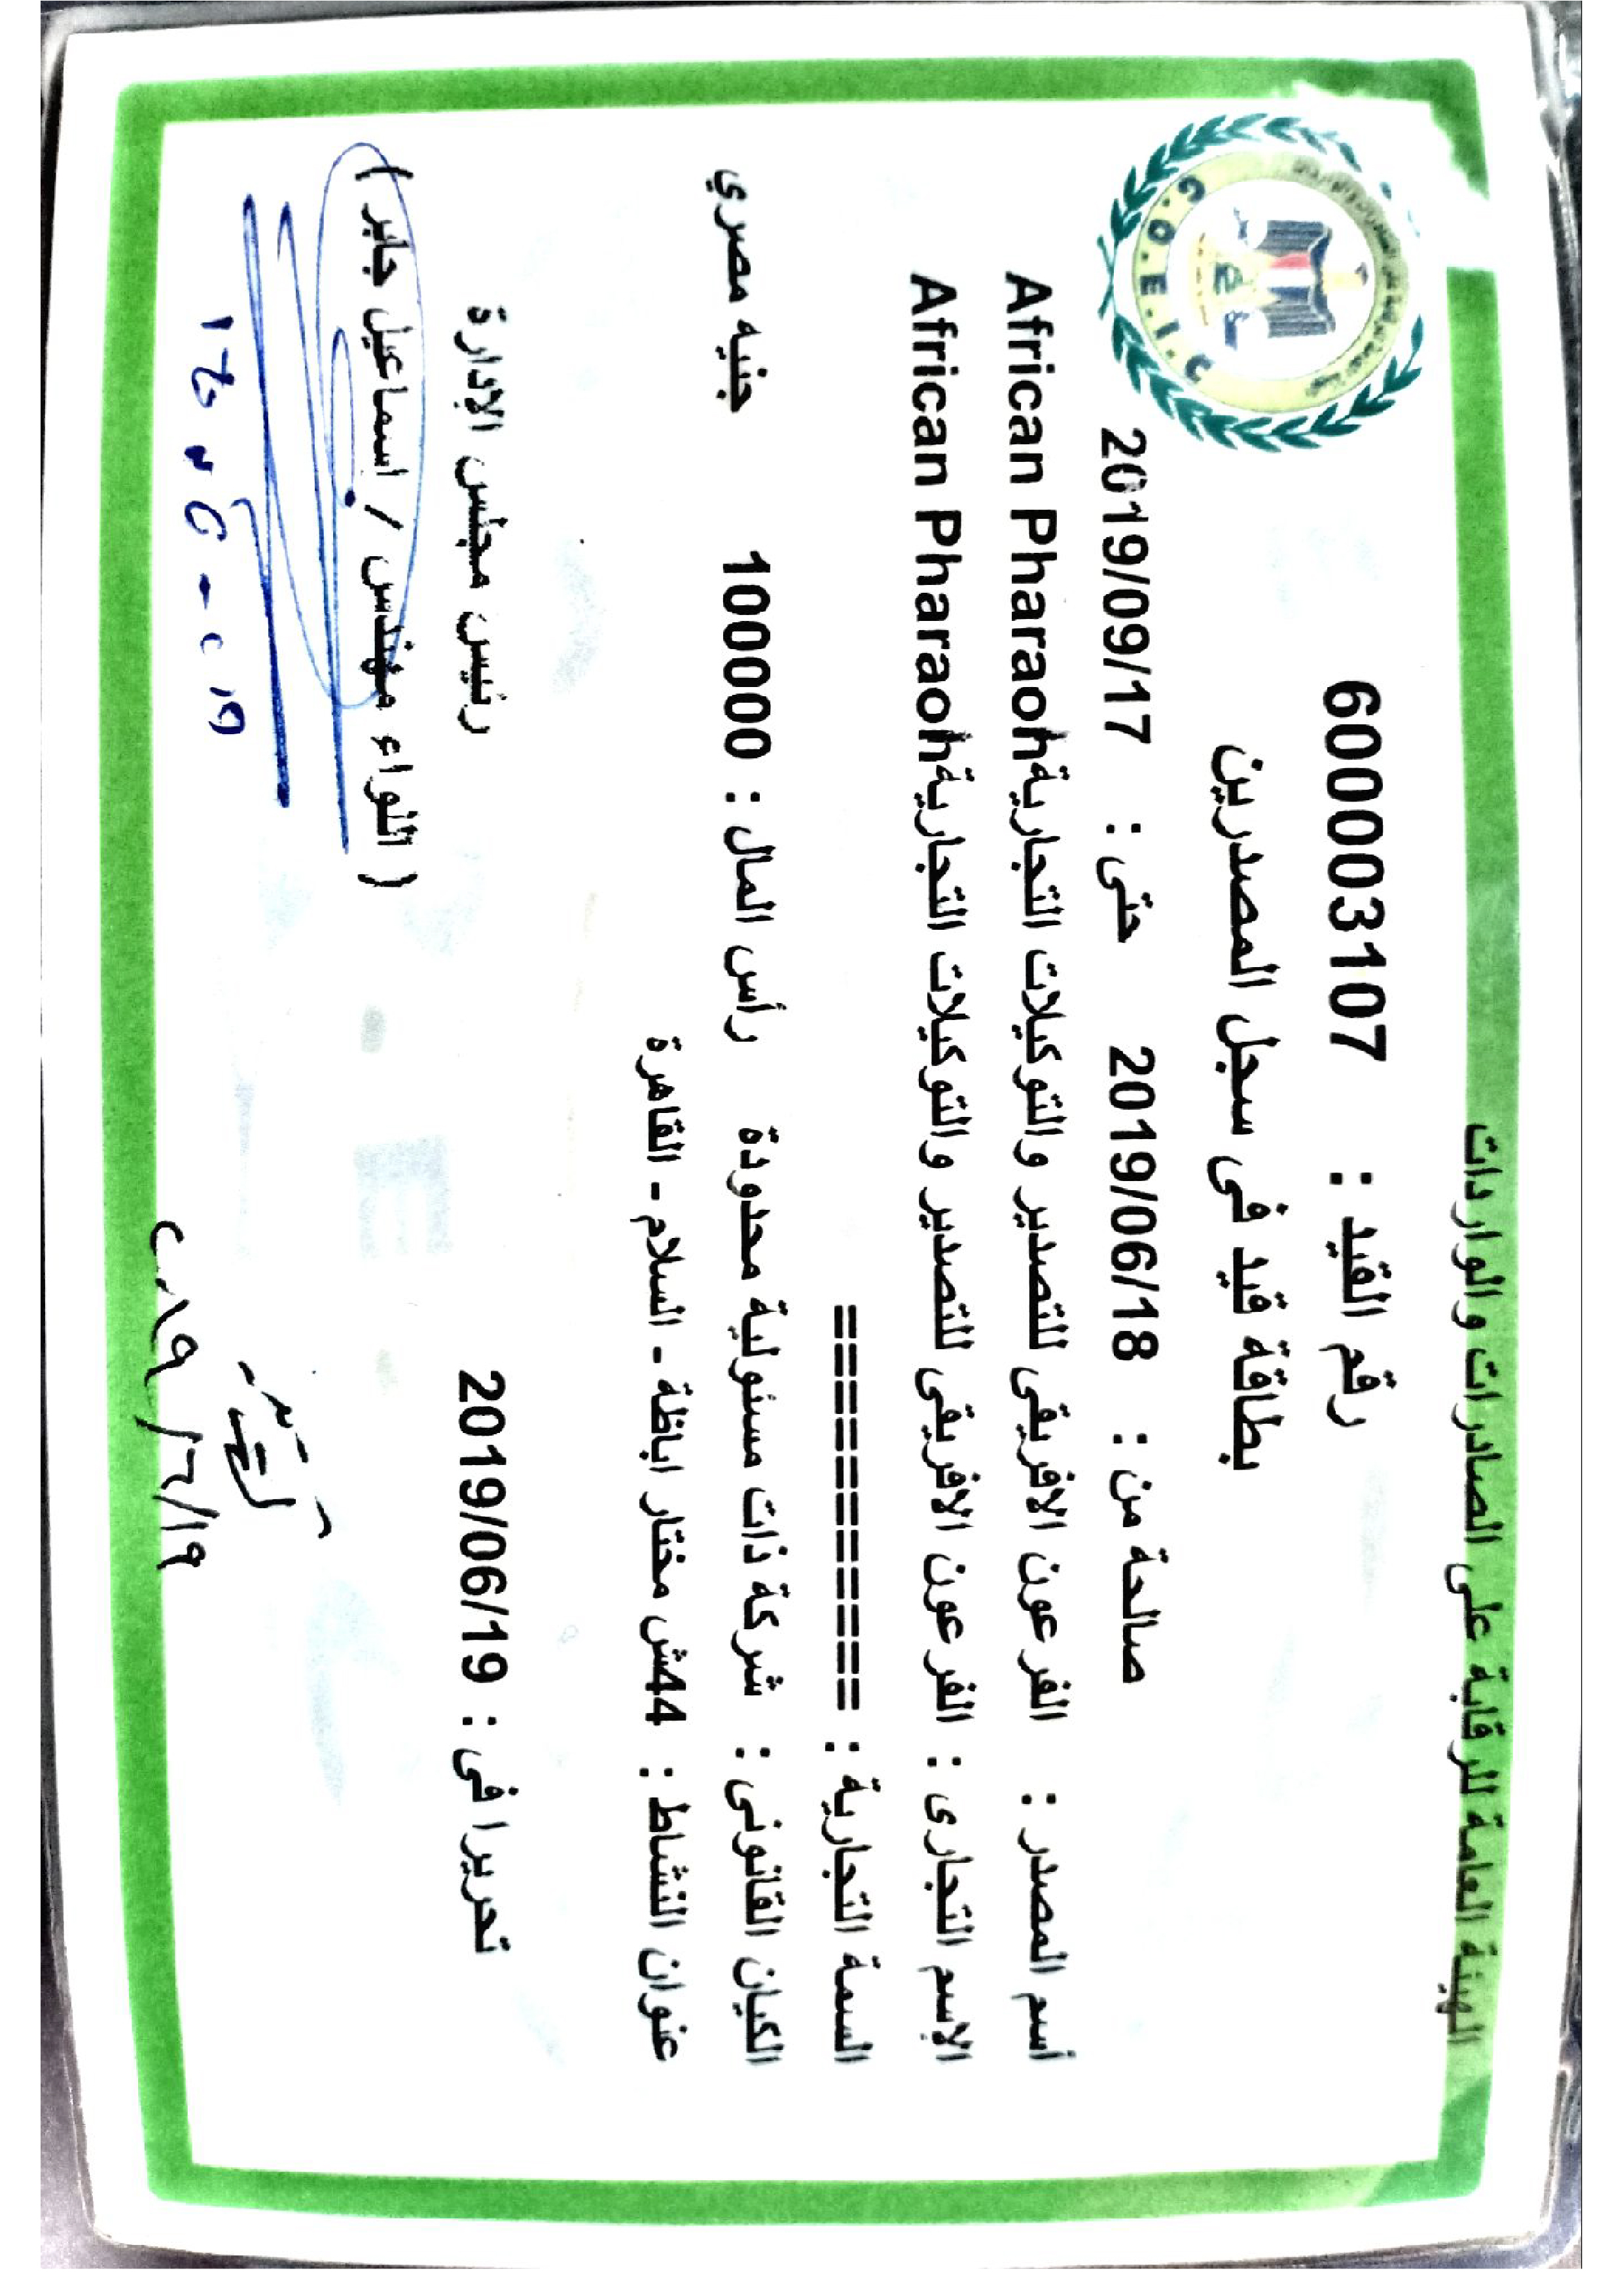 الهيئة العامة للرقابة على الصادرات والواردات
G.O.E.I.C
رقم القيد : 6000003107
بطاقة قيد فى سجل المصدرين
صالحة من : 2019/06/18 حتى : 2019/09/17
أسم المصدر : الفرعون الافريقى للتصدير والتوكيلات التجارية African Pharaoh
الإسم التجارى : الفرعون الافريقى للتصدير والتوكيلات التجارية African Pharaoh
السمة التجارية : ===============
الكيان القانونى : شركة ذات مسئولية محدودة رأس المال : 100000 جنيه مصري
عنوان النشاط : 44ش مختار اباظة - السلام - القاهرة
تحريرا فى : 2019/06/19 رئيس مجلس الإدارة
( اللواء مهندس / إسماعيل جابر )
٢٠١٩/٦/١٩